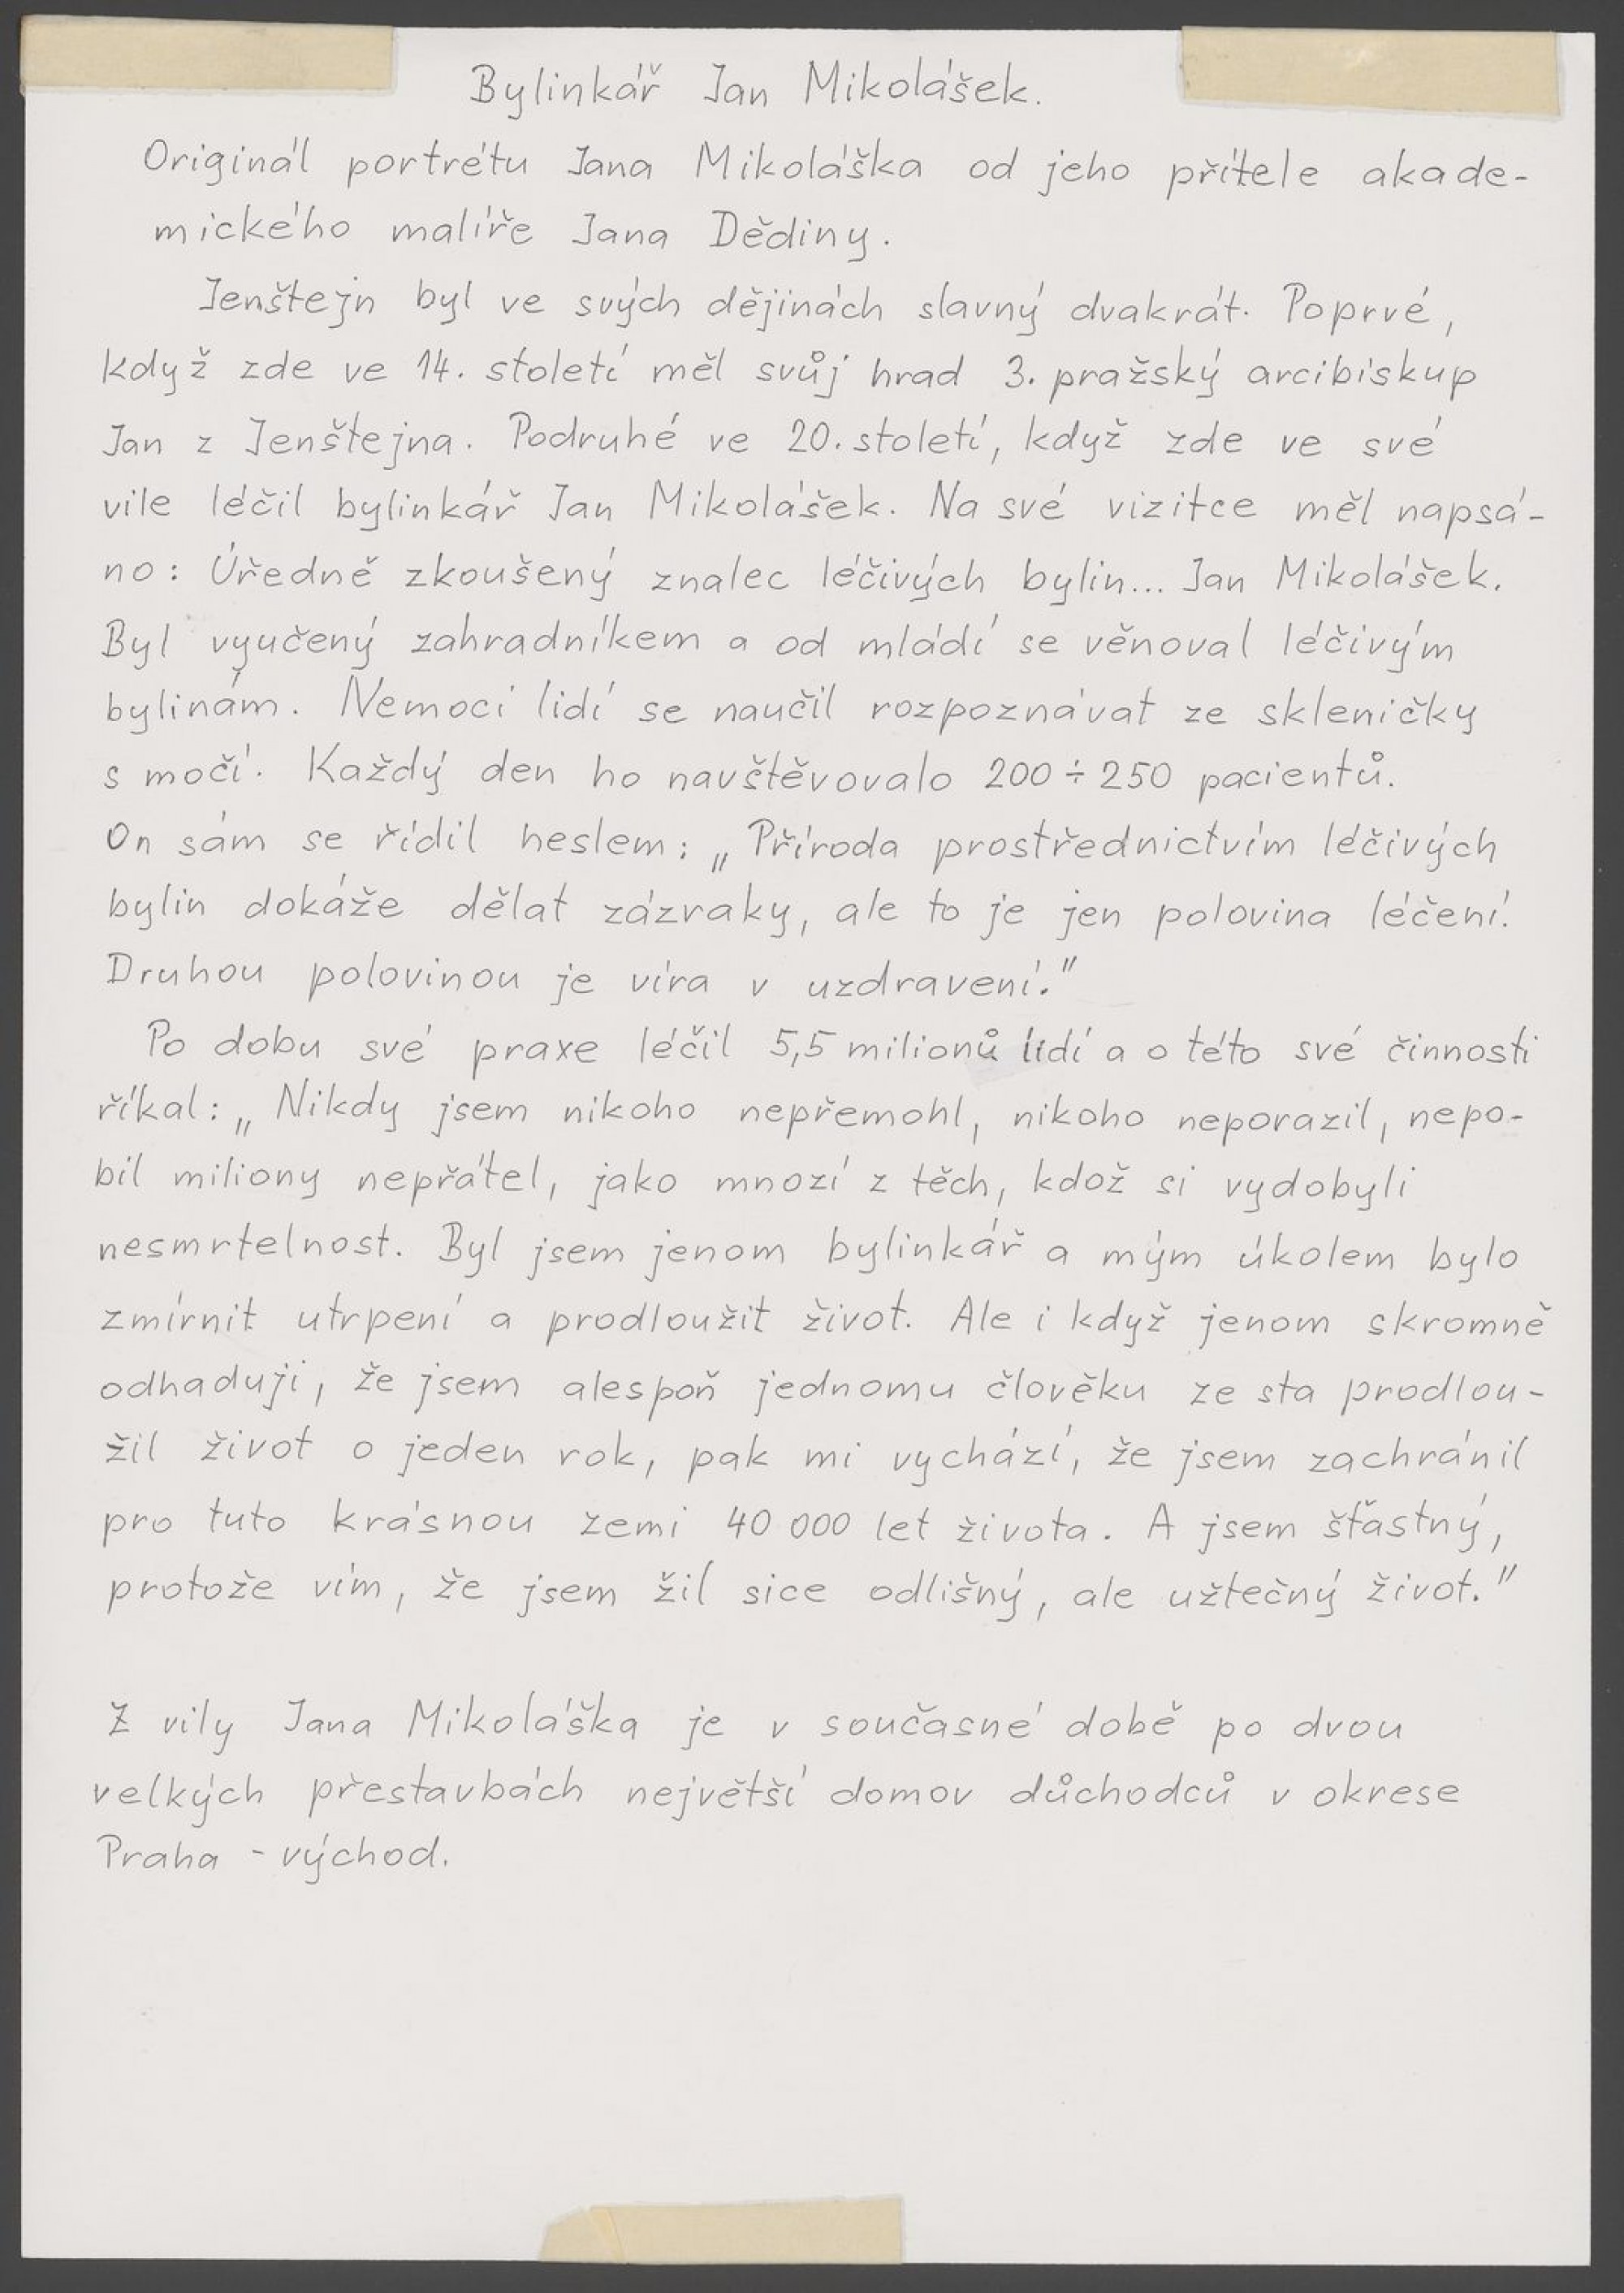 Bylinkář Jan Mikolášek.
Originál portrétu Jana Mikoláška od jeho přítele akade-
mického malíře Jana Dědiny.
Jenštejn byl ve svých dějinách slavný dvakrát. Poprvé,
když zde ve 14. století měl svůj hrad 3. pražský arcibiskup
Jan z Jenštejna. Podruhé ve 20. století, když zde ve své
vile léčil bylinkář Jan Mikolášek. Na své vizitce měl napsá-
no: Úředně zkoušený znalec léčivých bylin... Jan Mikolášek.
Byl vyučený zahradníkem a od mládí se věnoval léčivým
bylinám. Nemoci lidí se naučil rozpoznávat ze skleničky
s močí. Každý den ho navštěvovalo 200 ÷ 250 pacientů.
On sám se řídil heslem: „Příroda prostřednictvím léčivých
bylin dokáže dělat zázraky, ale to je jen polovina léčení.
Druhou polovinou je víra v uzdravení."
Po dobu své praxe léčil 5,5 milionů lidí a o této své činnosti
říkal: „Nikdy jsem nikoho nepřemohl, nikoho neporazil, nepo-
bil miliony nepřátel, jako mnozí z těch, kdož si vydobyli
nesmrtelnost. Byl jsem jenom bylinkář a mým úkolem bylo
zmírnit utrpení a prodloužit život. Ale i když jenom skromně
odhaduji, že jsem alespoň jednomu člověku ze sta prodlou-
žil život o jeden rok, pak mi vychází, že jsem zachránil
pro tuto krásnou zemi 40 000 let života. A jsem šťastný,
protože vím, že jsem žil sice odlišný, ale užtečný život."
Z vily Jana Mikoláška je v současné době po dvou
velkých přestavbách největší domov důchodců v okrese
Praha - východ.